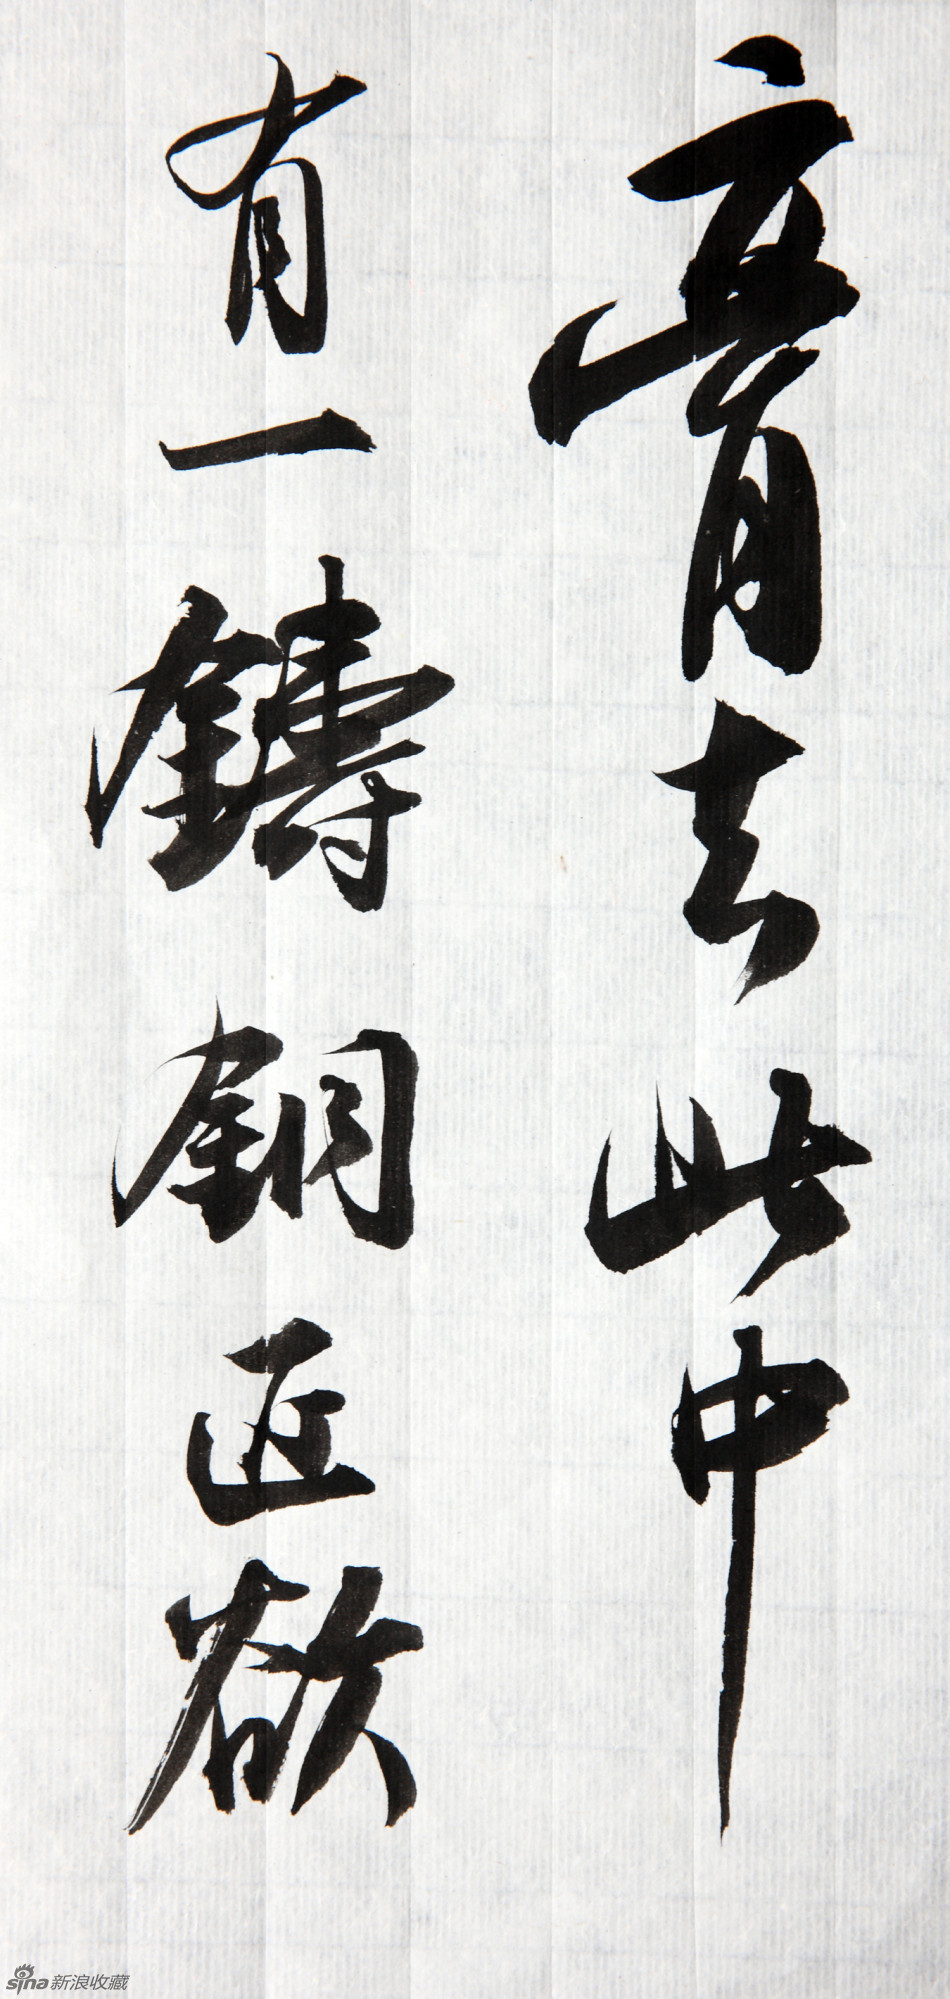 齊去此中
有一鑄銅匠欲
sina新浪收藏